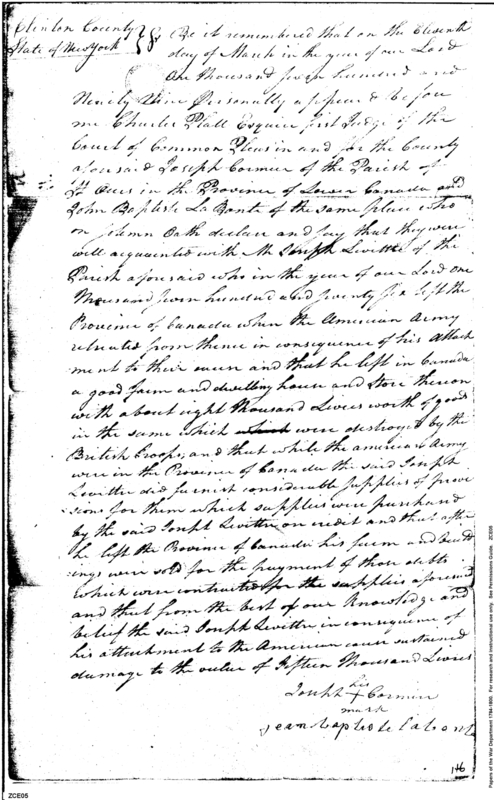 Clinton County } ss Be it remembered that on the Eleventh
State of New York day of March in the year of our Lord
One thousand seven hundred and
Ninety Nine Personally appeared before
me Charles Platt Esquire first Judge of the
Court of Common Pleas in and for the County
aforesaid Joseph Cormier of the Parish of
in the Province of Lower Canada and
John Baptiste La Bonte of the same place who
on solemn Oath declare and say that they were
well acquainted with Mr Joseph Livitte of the
Parish aforesaid who in the year of our Lord one
Thousand seven hundred and seventy six left the
Province of Canada when the American Army
retreated from thence in consequence of his Attach
ment to their cause and that he left in Canada
a good farm and dwelling house and Store thereon
with about eight thousand Livres worth of goods
in the same which were destroyed by the
British Troops, and that while the american Army
were in the Province of Canada the said Joseph
Levittre did furnish considerable supplies of provi
sions for them which supplies were purchased
by the said Joseph Livittre on credit and that after
he left the Province of Canada his farm and build
ings were sold for the payment of those debts
which were contracted for the supplies aforesaid
and that from the best of our Knowledge and
belief the said Joseph Livittre in consequence of
his attachment to the American cause sustained
damage to the value of fifteen Thousand Livres
Joseph his + mark Cormier
Jean baptiste labonte
ZCE05
Papers of the War Department 1784-1800. For research and instructional use only. See Permissions Guide. ZCE05